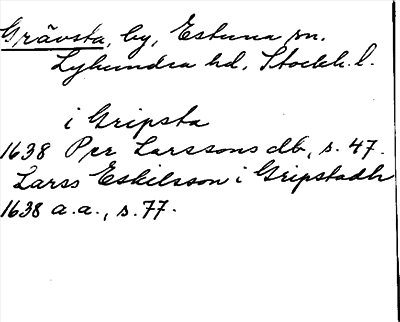 Grävsta, by, Estuna sn.
Lyhundra hd, Stockh. l.
i Gripsta
1638 Per Larssons db, s. 47.
Larss Eskilsson i Gripstadh
1638 a.a., s. 77.